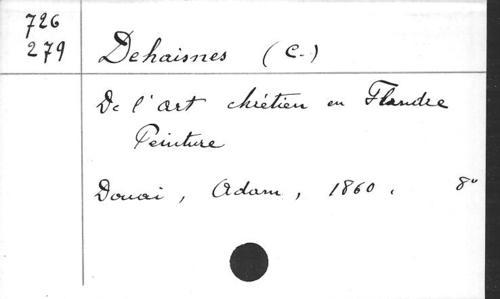 726
279
Dehaisnes (C.)
De l'art chrétien en Flandre
Peinture
Douai, Adam, 1860. 8°